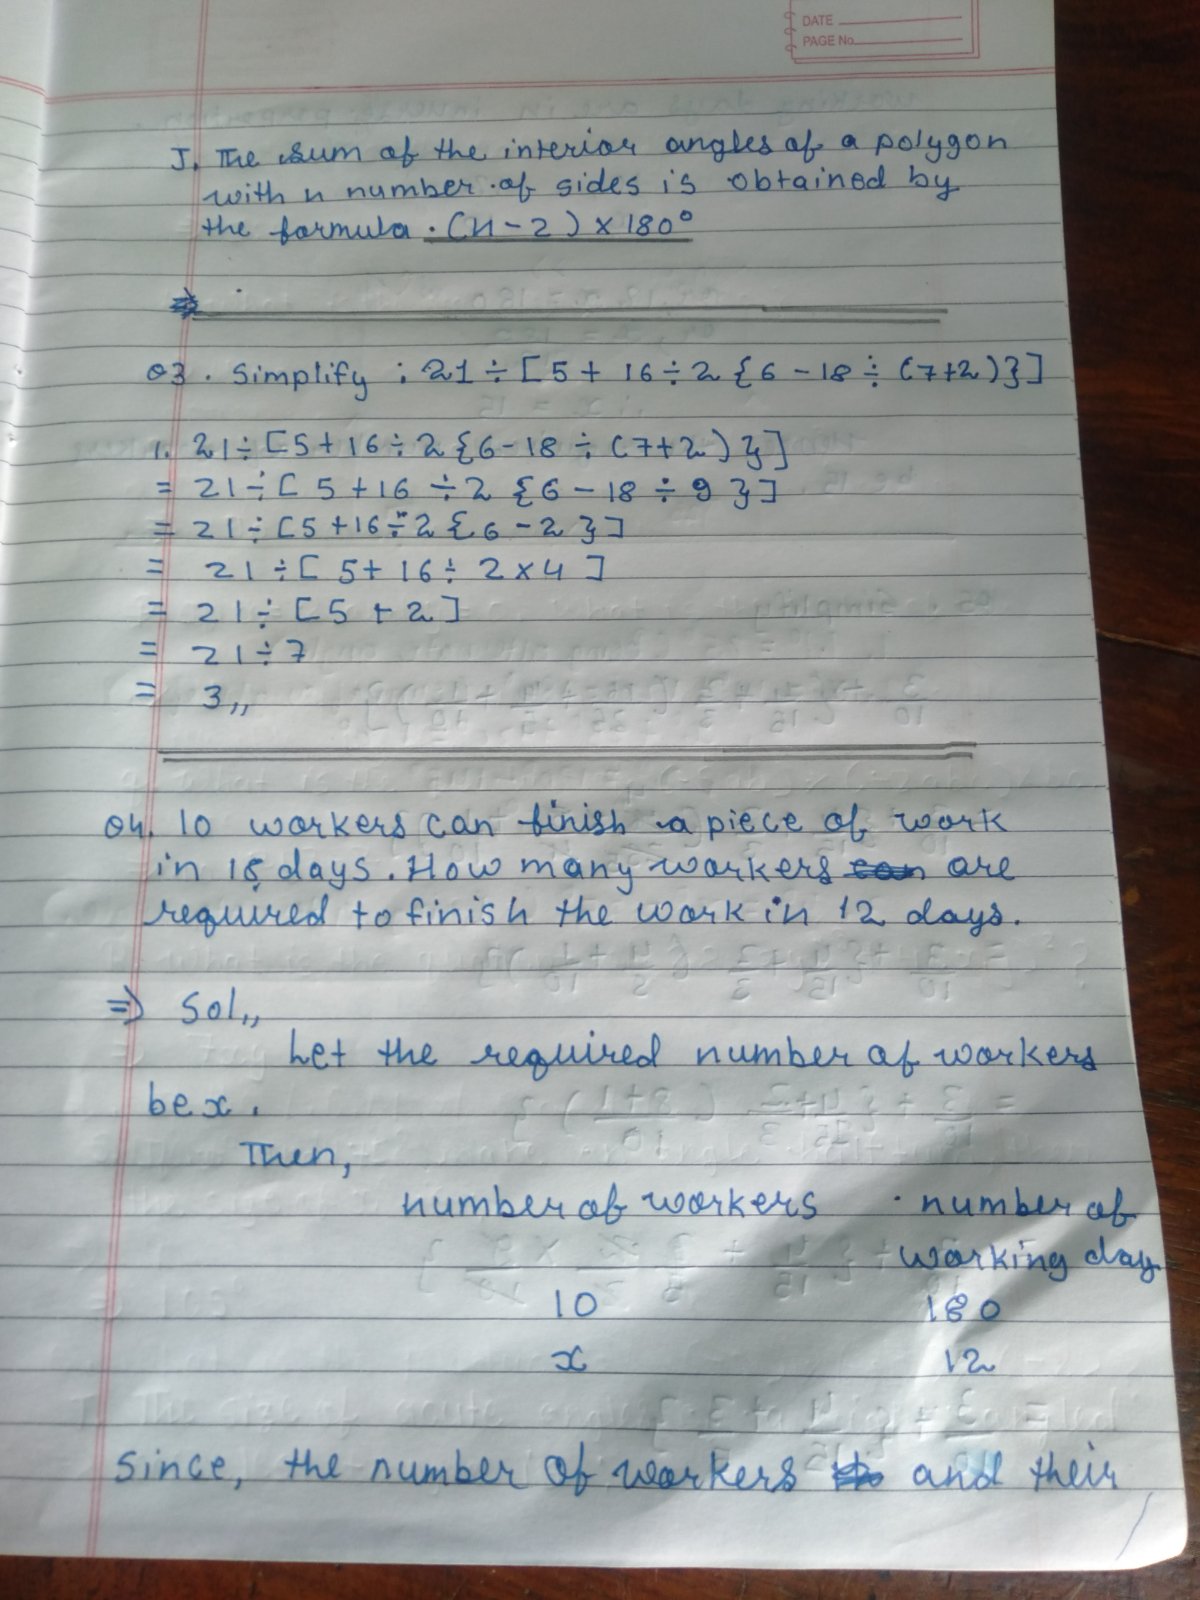 DATE
PAGE No.
J. The sum of the interior angles of a polygon
with n number of sides is obtained by
the formula . (n-2) × 180°
Q3. Simplify : 21 ÷ [5 + 16 ÷ 2 {6 - 18 ÷ (7+2)}]
1. 21 ÷ [5 + 16 ÷ 2 {6 - 18 ÷ (7+2)}]
= 21 ÷ [5 + 16 ÷ 2 {6 - 18 ÷ 9}]
= 21 ÷ [5 + 16 ÷ 2 {6 - 2}]
= 21 ÷ [5 + 16 ÷ 2 × 4]
= 21 ÷ [5 + 2]
= 21 ÷ 7
= 3,,
Q4. 10 workers can finish a piece of work
in days. How many workers are
required to finish the work in 12 days.
=> Sol,,
Let the required number of workers
be x.
Then,
number of workers number of
working day
10 180
x 12
Since, the number of workers and their